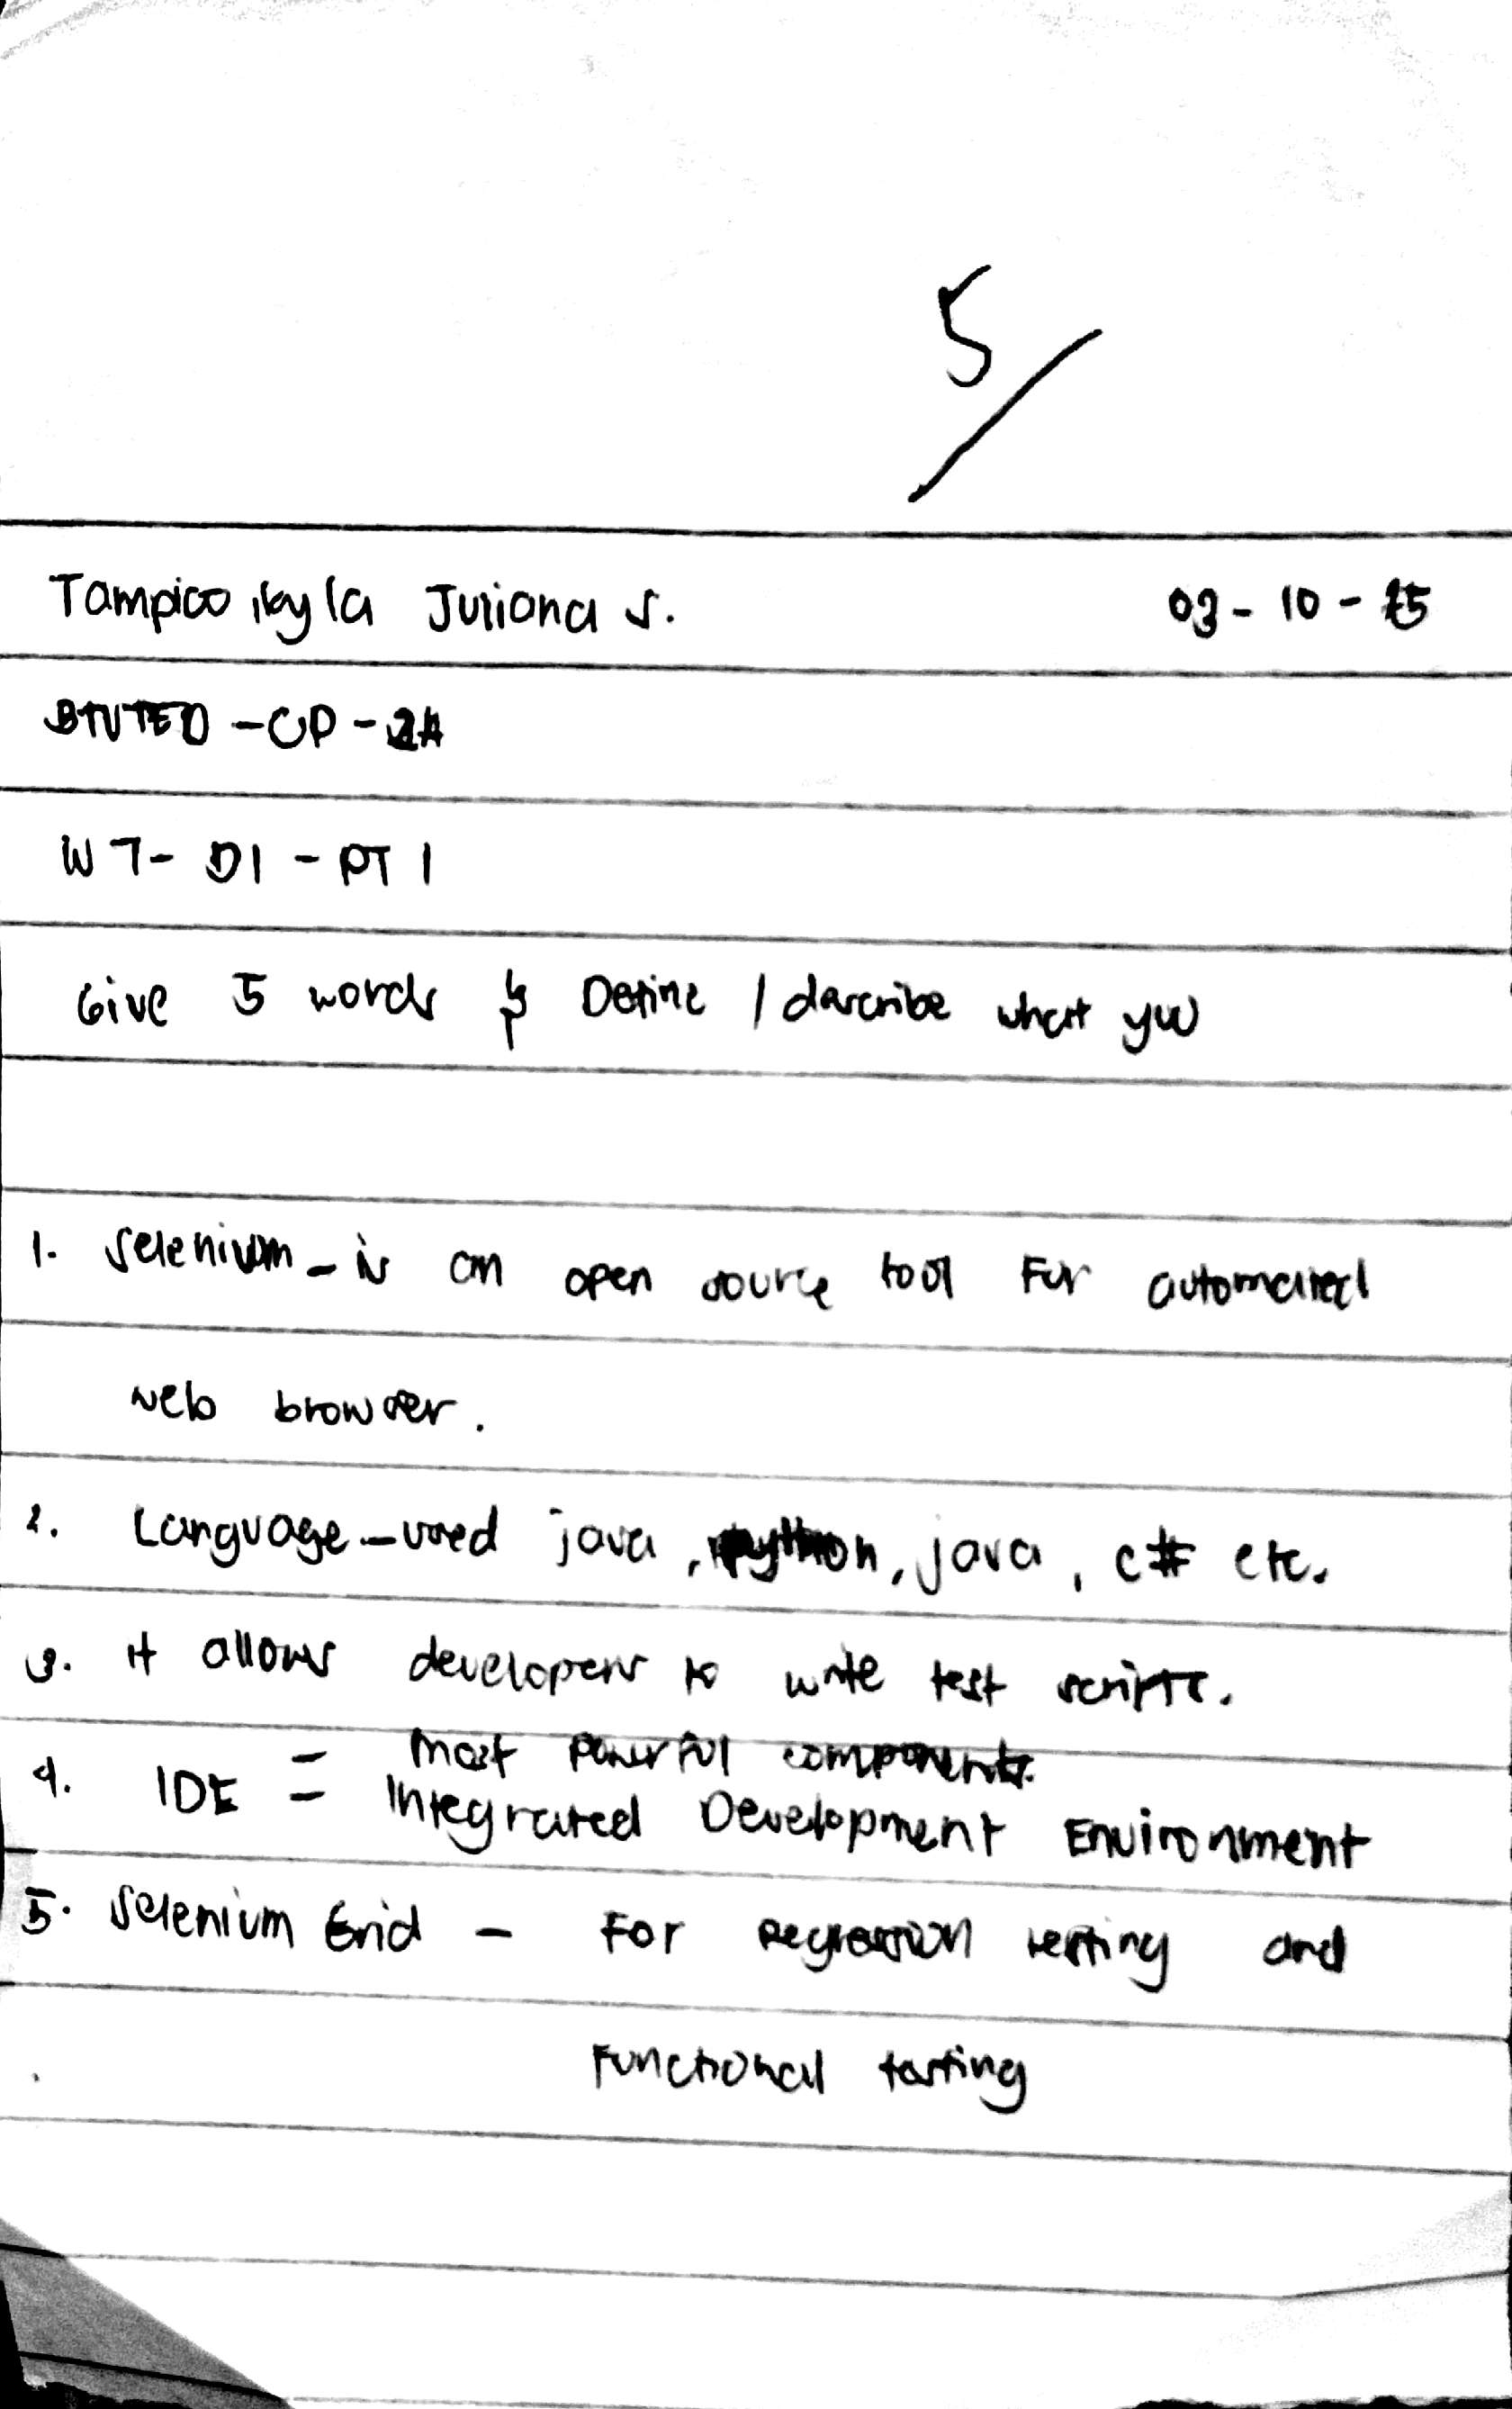 5/
Tampico Kyla Juliana S. 03-10-25
BTVTED-CP-2A
W7-D1-PT1
Give 5 words & Define / describe what you
1. Selenium - is an open source tool For automated
web browser.
2. Language - used java, python, java, c# etc.
3. it allows developers to write test scripts.
most powerful components.
4. IDE = Integrated Development Environment
5. Selenium Grid - For Regression testing and
Functional testing